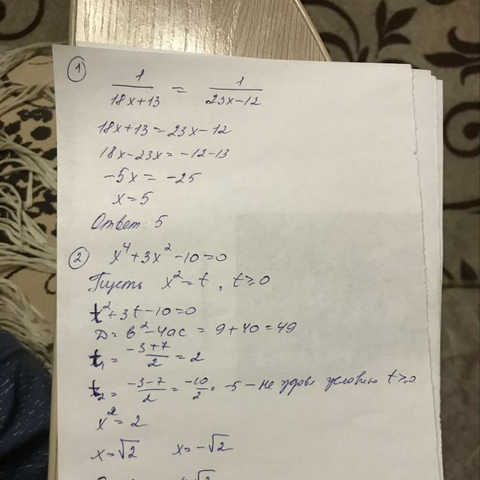 ① 1/(18x+13) = 1/(23x-12)
18x+13=23x-12
18x-23x=-12-13
-5x = -25
x=5
Ответ: 5
② x⁴+3x²-10=0
Пусть x²=t, t≥0
t²+3t-10=0
D=b²-4ac = 9+40=49
t₁ = (-3+7)/2 = 2
t₂ = (-3-7)/2 = -10/2 = -5 - не удовл условию t≥0
x²=2
x=√2 x=-√2